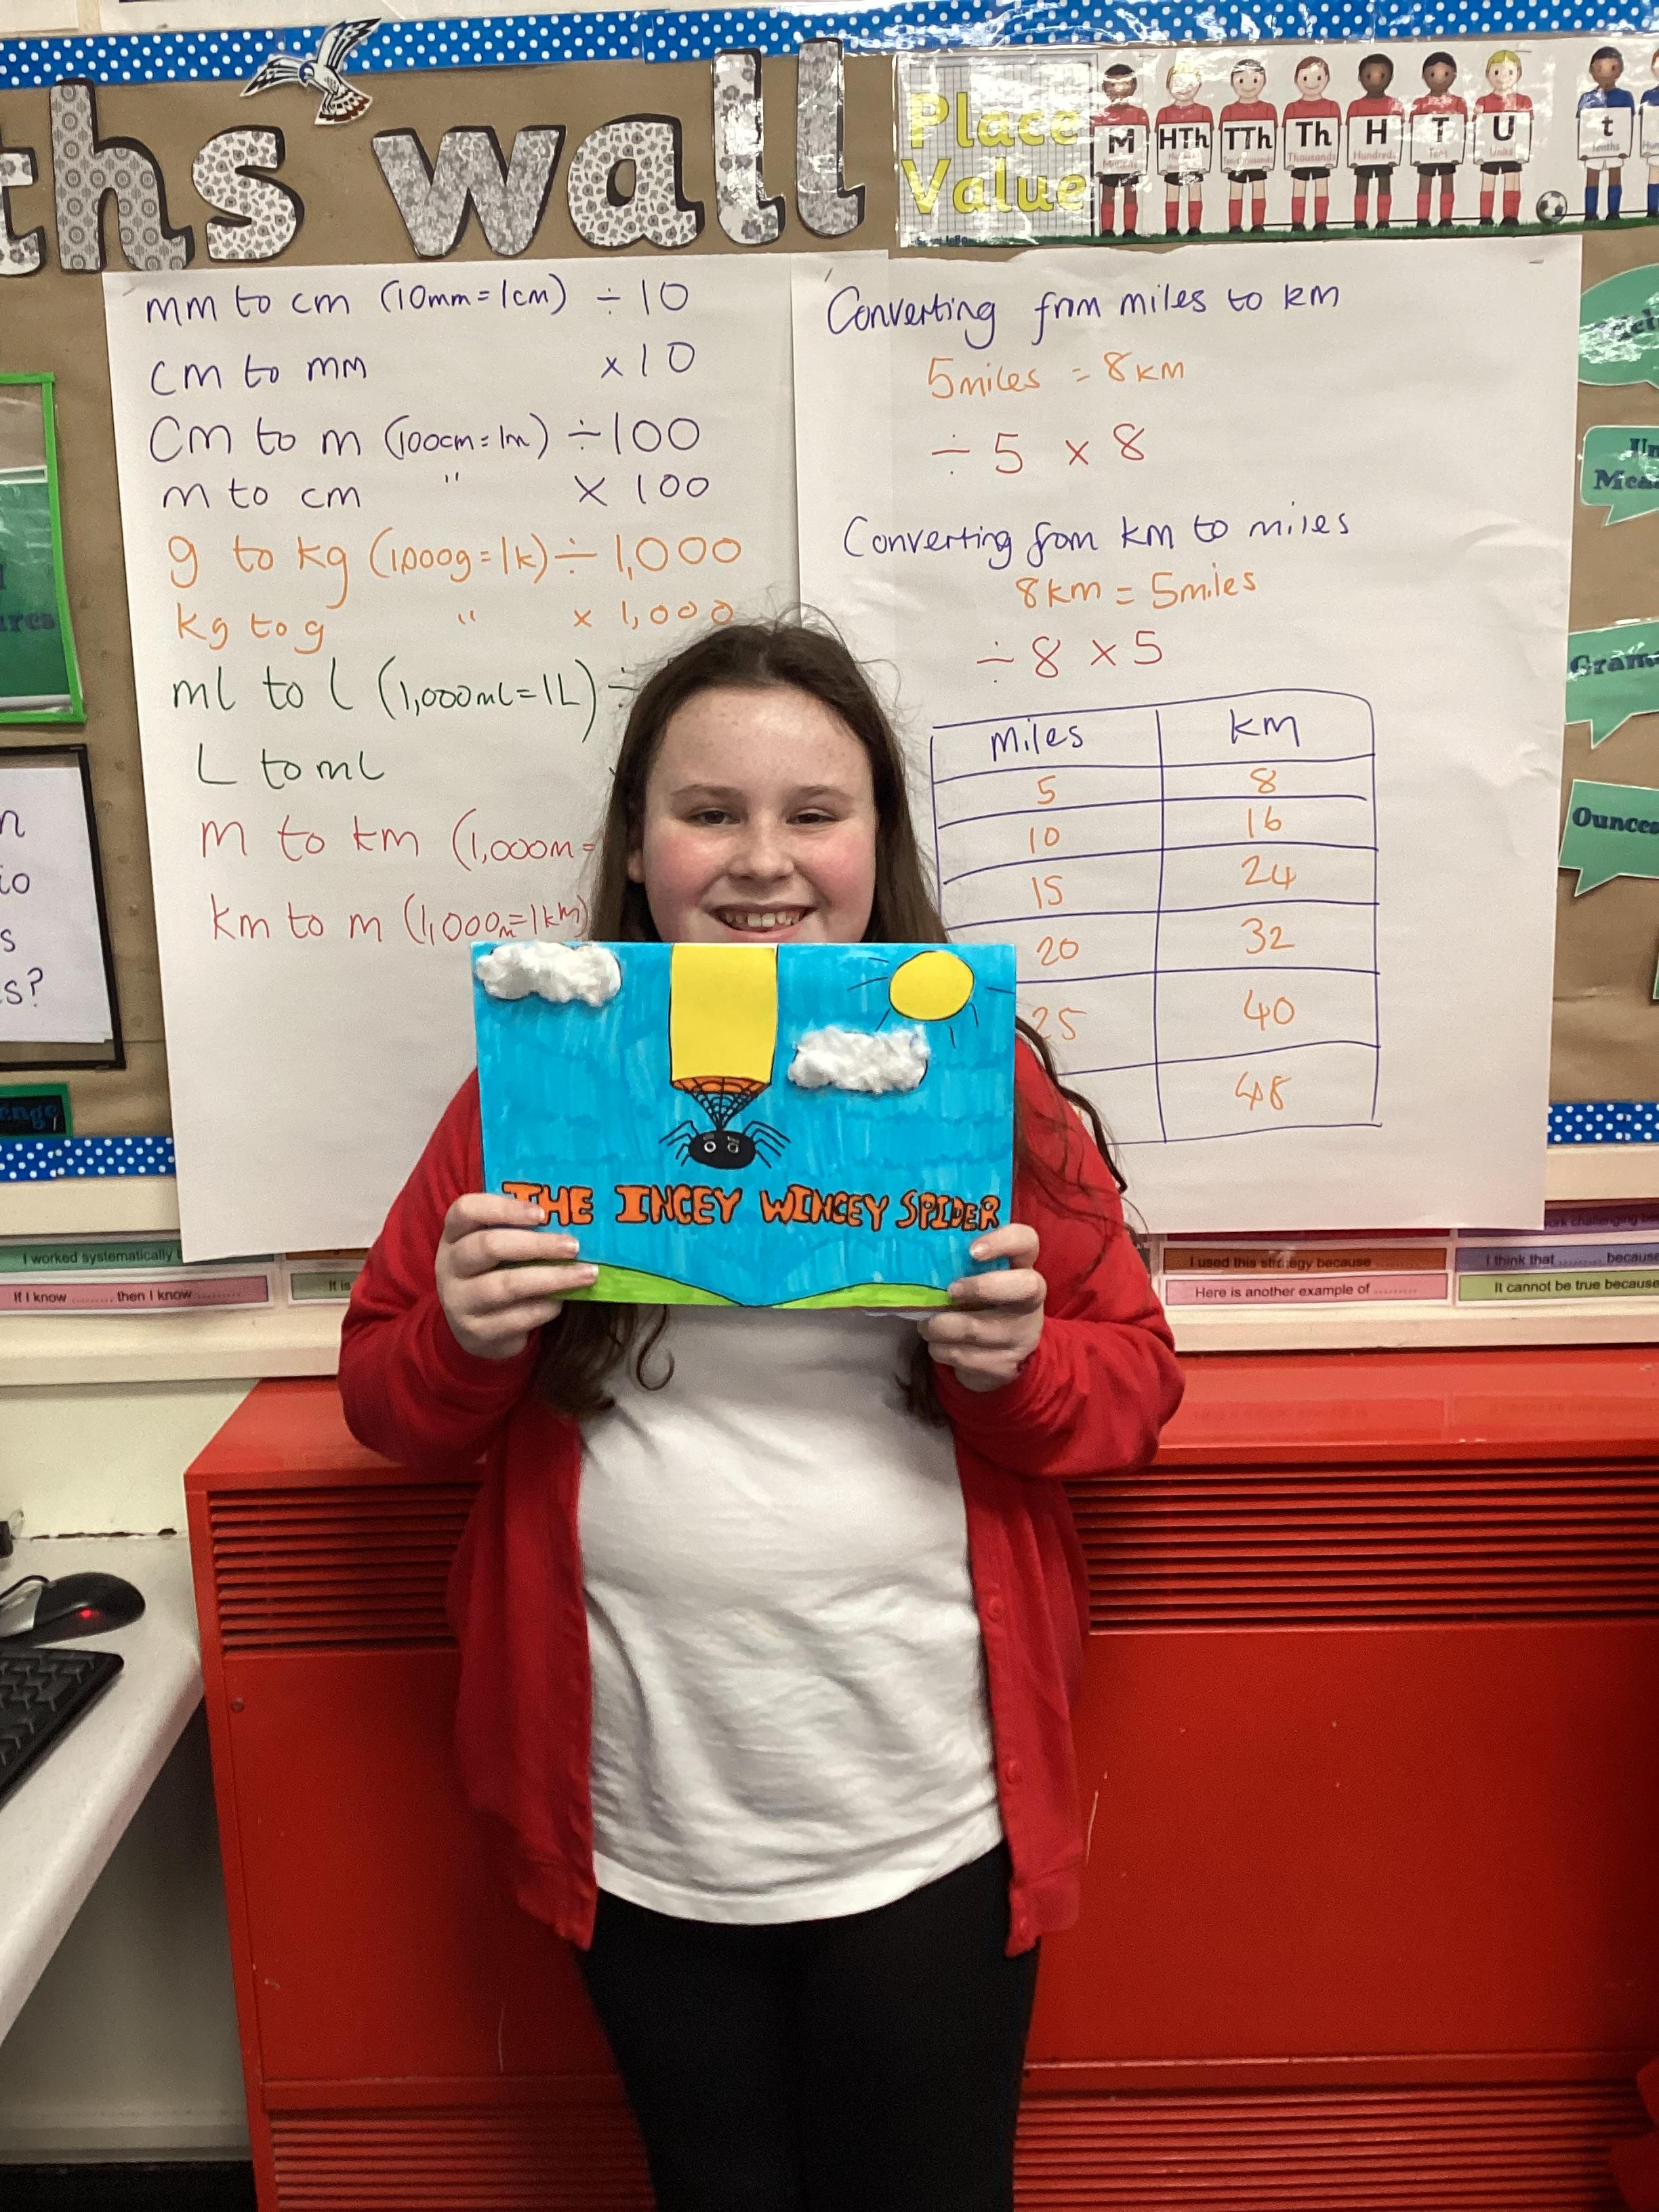 ths wall
Place
Value
M HTh TTh Th H T U t
Thousands Hundreds Tens Units tenths
mm to cm (10mm=1cm) ÷10
cm to mm ×10
cm to m (100cm=1m) ÷100
m to cm " × 100
g to kg (1,000g=1k) ÷ 1,000
kg to g " × 1,000
ml to l (1,000ml=1L) ÷
L to ml
m to km (1,000m=
km to m (1,000m=1km)
Converting from miles to km
5miles = 8km
÷ 5 × 8
Converting from km to miles
8km = 5miles
÷ 8 × 5
miles km
5 8
10 16
15 24
20 32
25 40
48
Grams
Ounces
s?
THE INCEY WINCEY SPIDER
I worked systematically
If I know ......... then I know .........
It is
I used this strategy because
Here is another example of .........
I think that ......... because
It cannot be true because